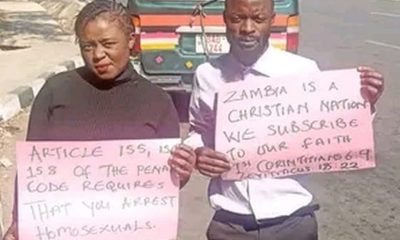 ARTICLE 155, 15
158 OF THE PENA
CODE REQUIRES
THAT YOU ARREST
HOMOSEXUALS.
ZAMBYA IS A
CHRISTIAN NATION
WE SUBSCRIBE
TO OUR FAITH
1ST CORINTITIANS 6:9
LEVITITICUS 18:22